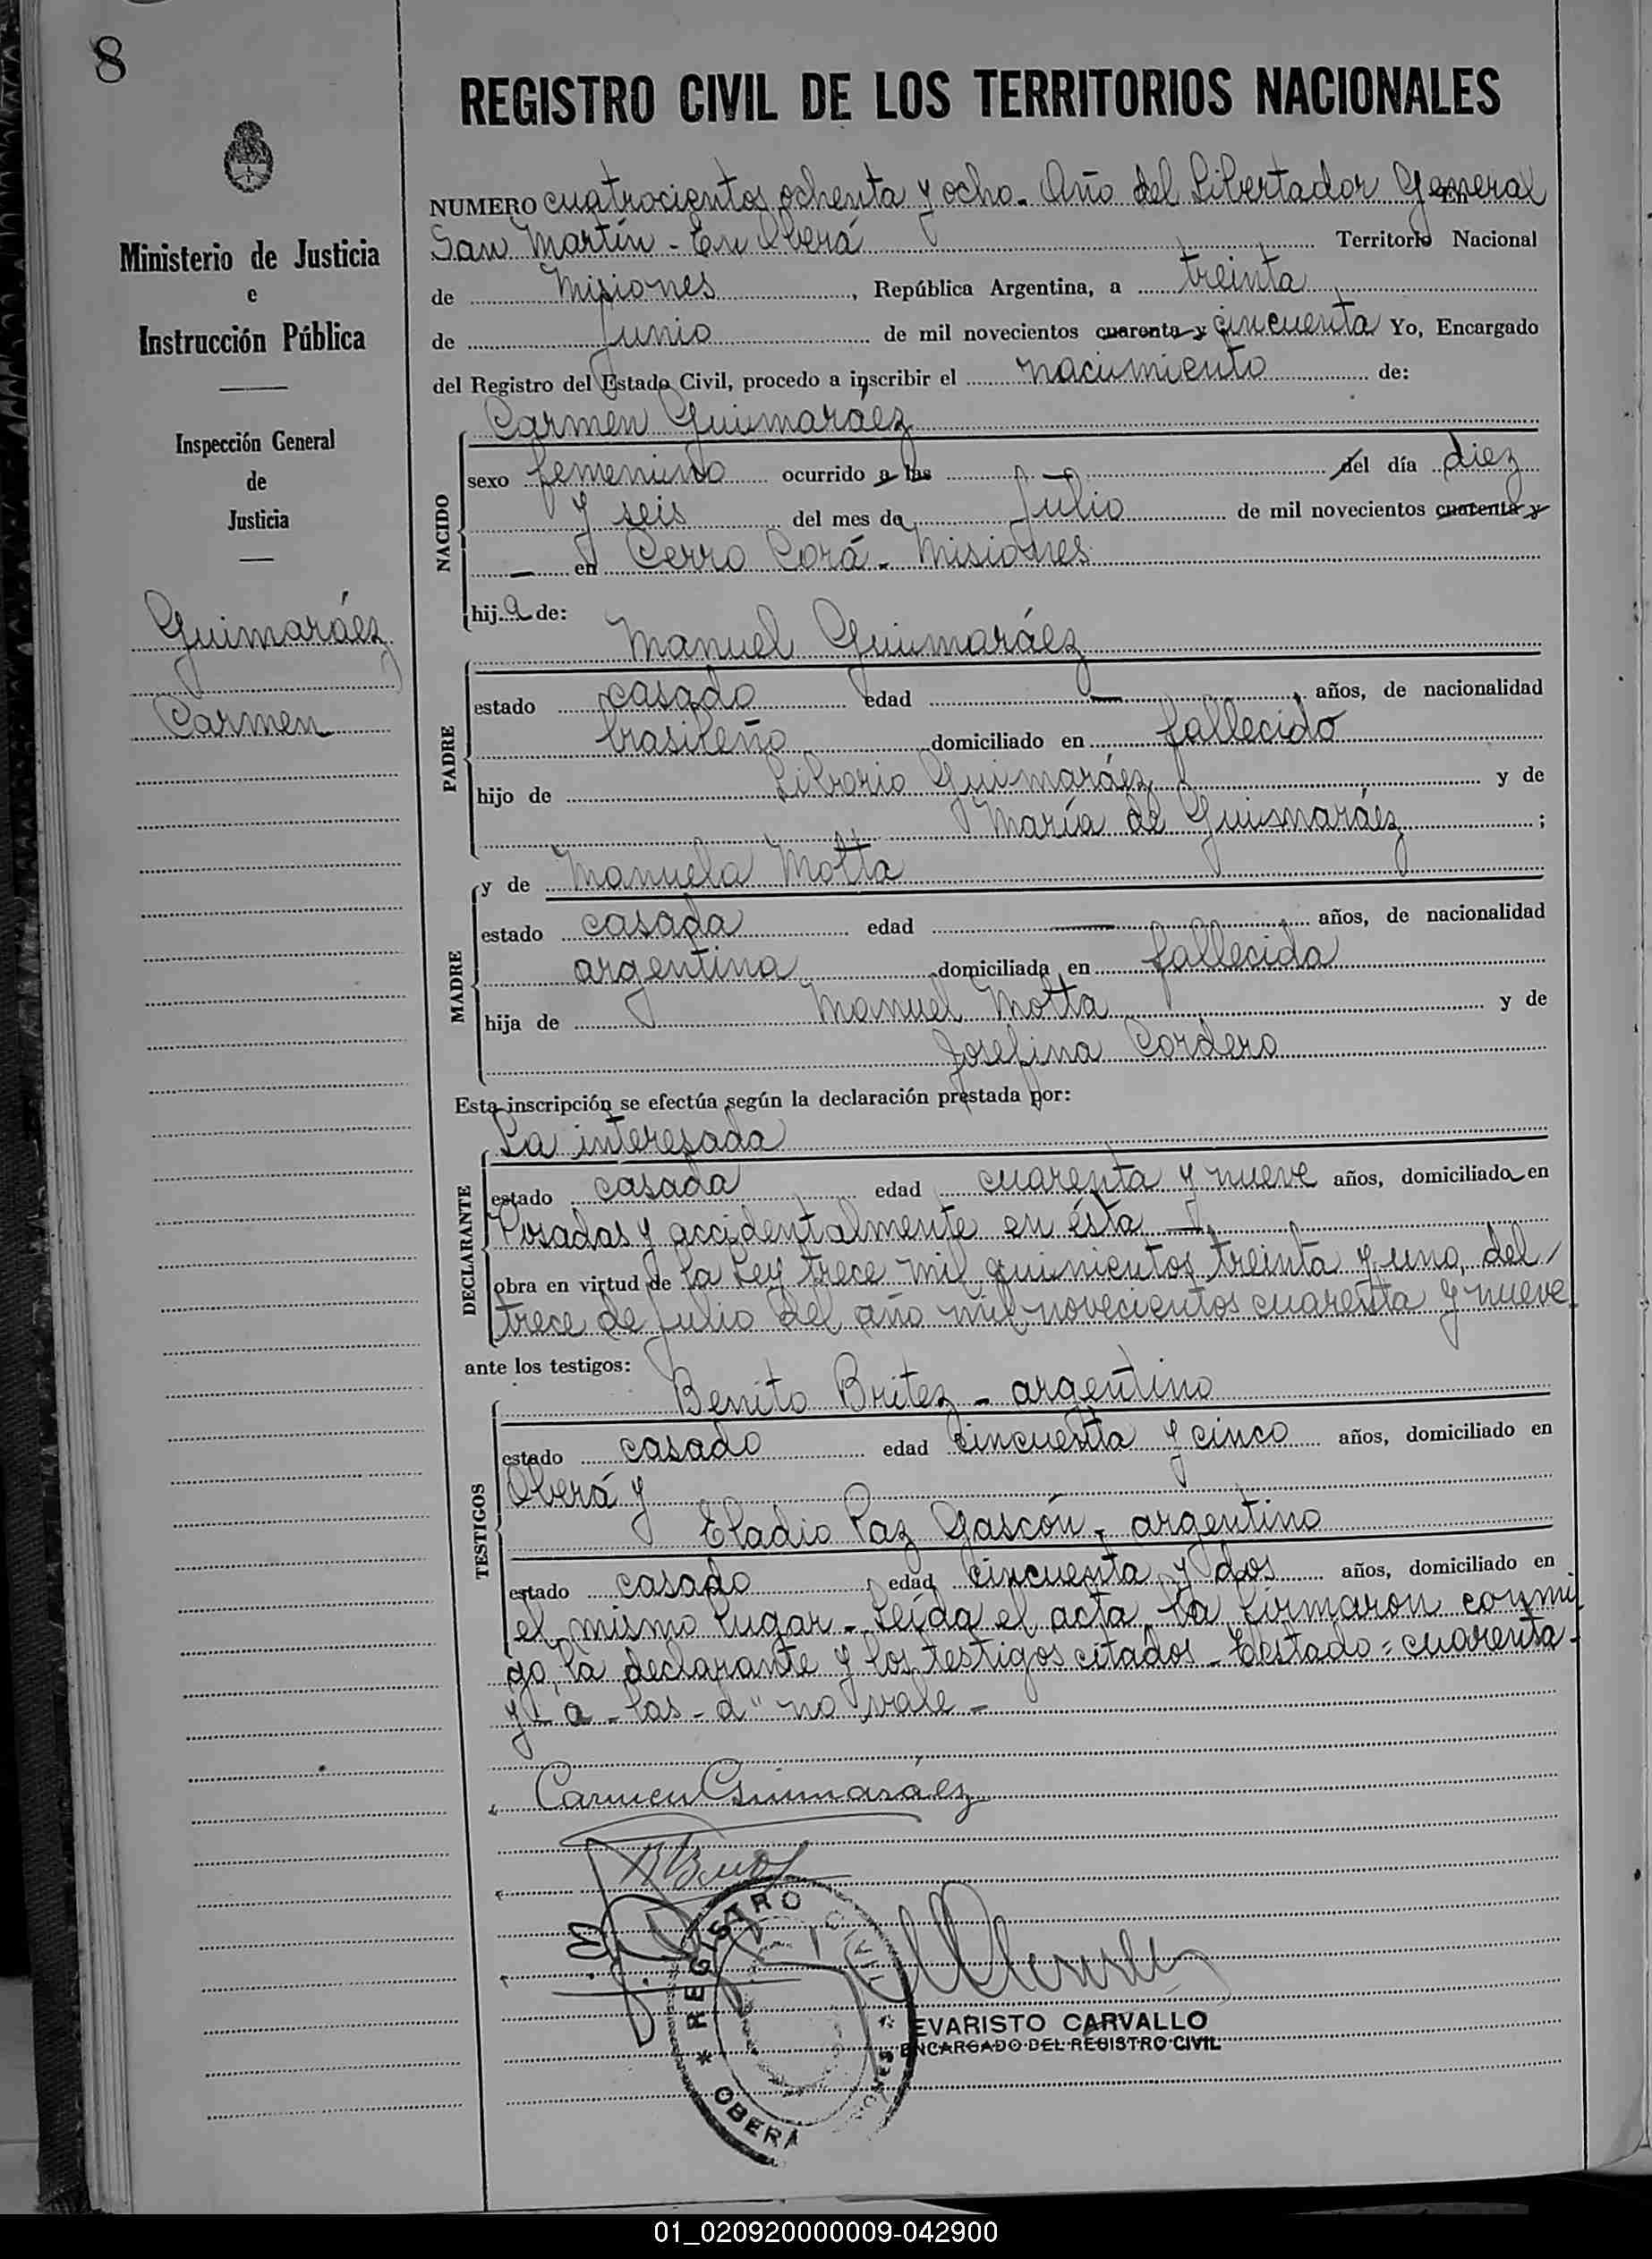 8
REGISTRO CIVIL DE LOS TERRITORIOS NACIONALES
Ministerio de Justicia
e
Instrucción Pública
Inspección General
de
Justicia
Guimaráez
Carmen
NUMERO cuatrocientos ochenta y ocho. Año del Libertador General
San Martín - En Oberá Territorio Nacional
de Misiones, República Argentina, a treinta
de Junio de mil novecientos cuarenta y cincuenta Yo, Encargado
del Registro del Estado Civil, procedo a inscribir el nacimiento de:
Carmen Guimaráez
NACIDO
sexo femenino ocurrido a las — del día diez
y seis del mes de Julio de mil novecientos cuarenta y
— en Cerro Corá - Misiones
hija de:
PADRE
Manuel Guimaráez
estado casado edad — años, de nacionalidad
brasileño domiciliado en fallecido
hijo de Liborio Guimaráez y de
María de Guimaráez ;
MADRE
y de Manuela Motta
estado casada edad — años, de nacionalidad
argentina domiciliada en fallecida
hija de Manuel Motta y de
Josefina Cordero
Esta inscripción se efectúa según la declaración prestada por:
DECLARANTE
La interesada
estado casada edad cuarenta y nueve años, domiciliado en
Posadas y accidentalmente en ésta —
obra en virtud de la Ley trece mil quinientos treinta y uno, del
trece de Julio del año mil novecientos cuarenta y nueve
ante los testigos:
TESTIGOS
Benito Britez - argentino
estado casado edad cincuenta y cinco años, domiciliado en
Oberá y
Eladio Paz Gascón, argentino
estado casado, edad cincuenta y dos años, domiciliado en
el mismo lugar - Leída el acta la firmaron conmi
go, la declarante y los testigos citados - Testado = cuarenta
y - a - las - d" no vale -
Carmen Guimaráez
REGISTRO CIVIL
OBERA
EVARISTO CARVALLO
ENCARGADO DEL REGISTRO CIVIL
01_020920000009-042900